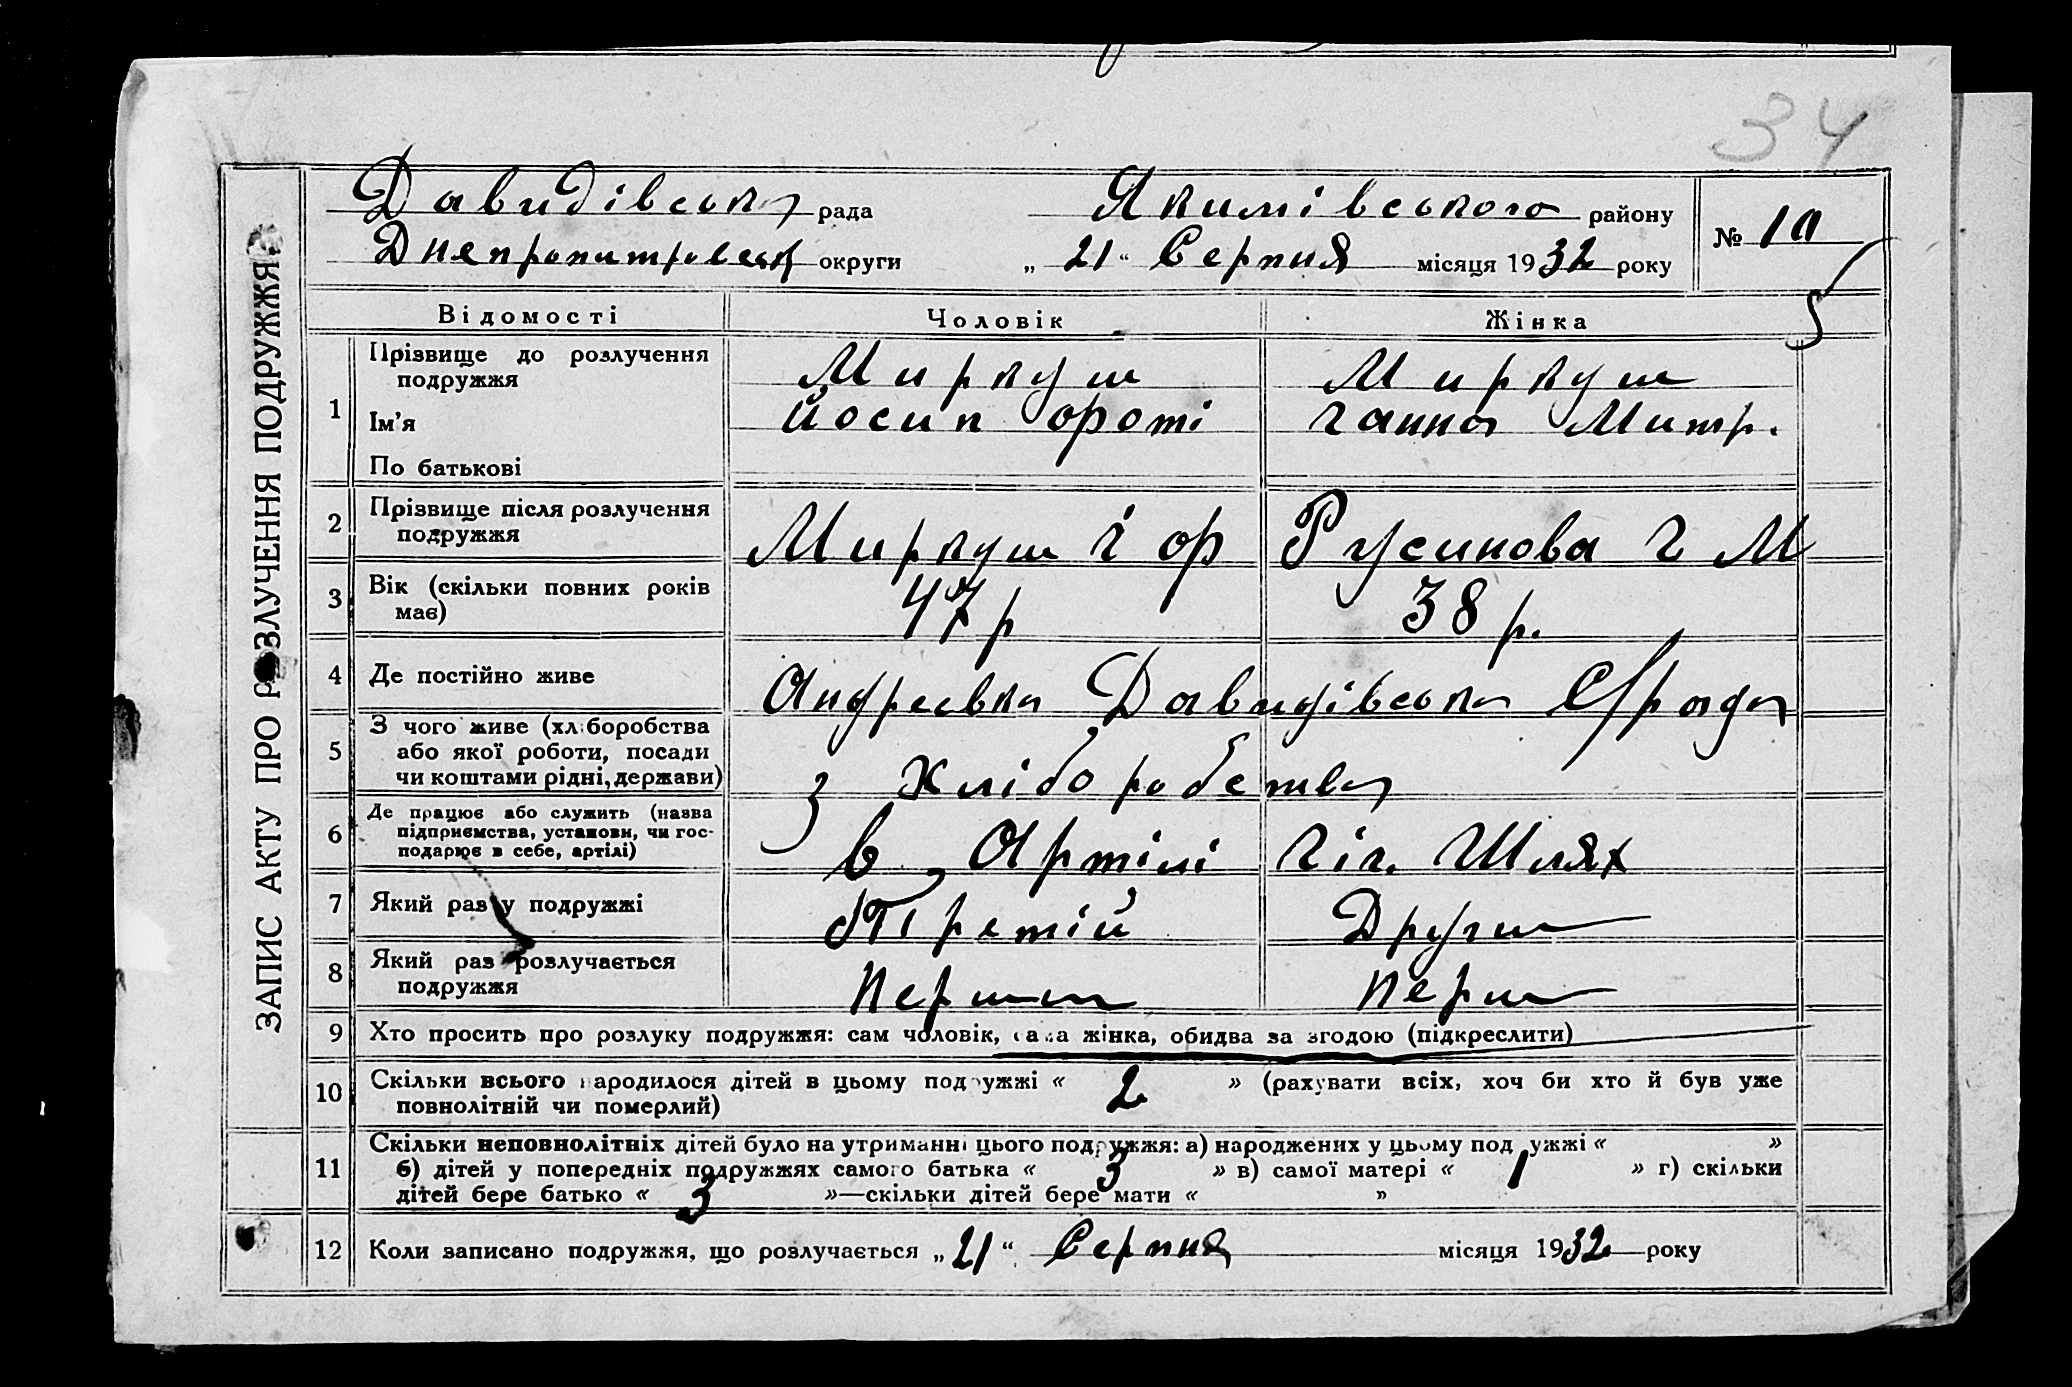 34
ЗАПИС АКТУ ПРО РОЗЛУЧЕННЯ ПОДРУЖЖЯ
Давидівська рада Якимівського району
№ 10
Днепропитровська округи „ 21 “ Серпня місяця 1932 року
Відомості Чоловік Жінка
1 Прізвище до розлучення подружжя Миркуш Миркуш
Ім'я Йосип Ороті Ганна Митр.
По батькові
2 Прізвище після розлучення подружжя Миркуш Й ор Русинова Г М
3 Вік (скільки повних років має) 47 р 38 р.
4 Де постійно живе Андреевка Давидівська С/рада
5 З чого живе (хліборобства або якої роботи, посади чи коштами рідні, держави) з Хліборобства
6 Де працює або служить (назва підприємства, установи, чи господарює в себе, артілі) в Артілі Гіг. Шлях
7 Який раз у подружжі Третій Други
8 Який раз розлучається подружжя Перши Перши
9 Хто просить про розлуку подружжя: сам чоловік, сама жінка, обидва за згодою (підкреслити)
10 Скільки всього народилося дітей в цьому подружжі « 2 » (рахувати всіх, хоч би хто й був уже
повнолітній чи померлий)
11 Скільки неповнолітніх дітей було на утриманні цього подружжя: а) народжених у цьому подружжі « »
б) дітей у попередніх подружжях самого батька « 3 » в) самої матері « 1 » г) скільки
дітей бере батько « 3 »—скільки дітей бере мати « »
12 Коли записано подружжя, що розлучається „ 21 “ Серпня місяця 1932 року